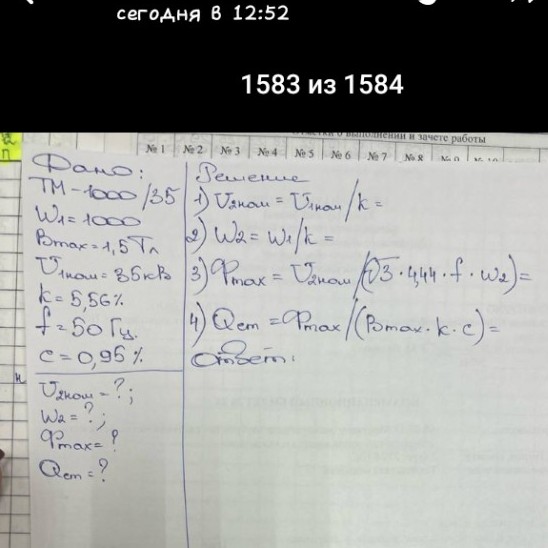 сегодня в 12:52
1583 из 1584
о выполнении и зачете работы
№ 1 № 2 № 3 № 4 № 5 № 6 № 7 № 8
Дано:
ТМ-1000/35
W1=1000
Bmax=1,5Тл
U1ном=35кВ
k=5,56%
f=50Гц.
c=0,95%
U2ном-?;
W2=?;
Фmax=?
Qст=?
Решение
1) U2ном=U1ном/k=
2) W2=W1/k=
3) Фmax=U2ном/(√3·4,44·f·W2)=
4) Qст=Фmax/(Bmax·k·c)=
Ответ: